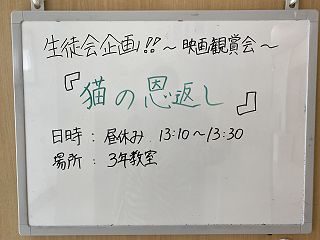 生徒会企画!!～映画観賞会～
『猫の恩返し』
日時：昼休み 13:10～13:30
場所：3年教室